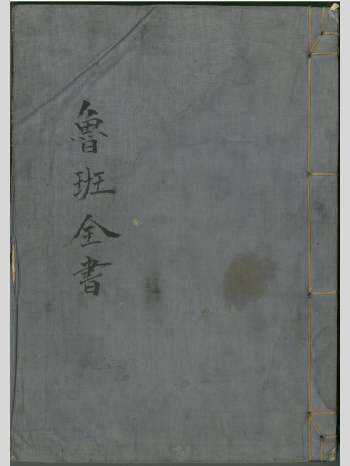 魯班全書